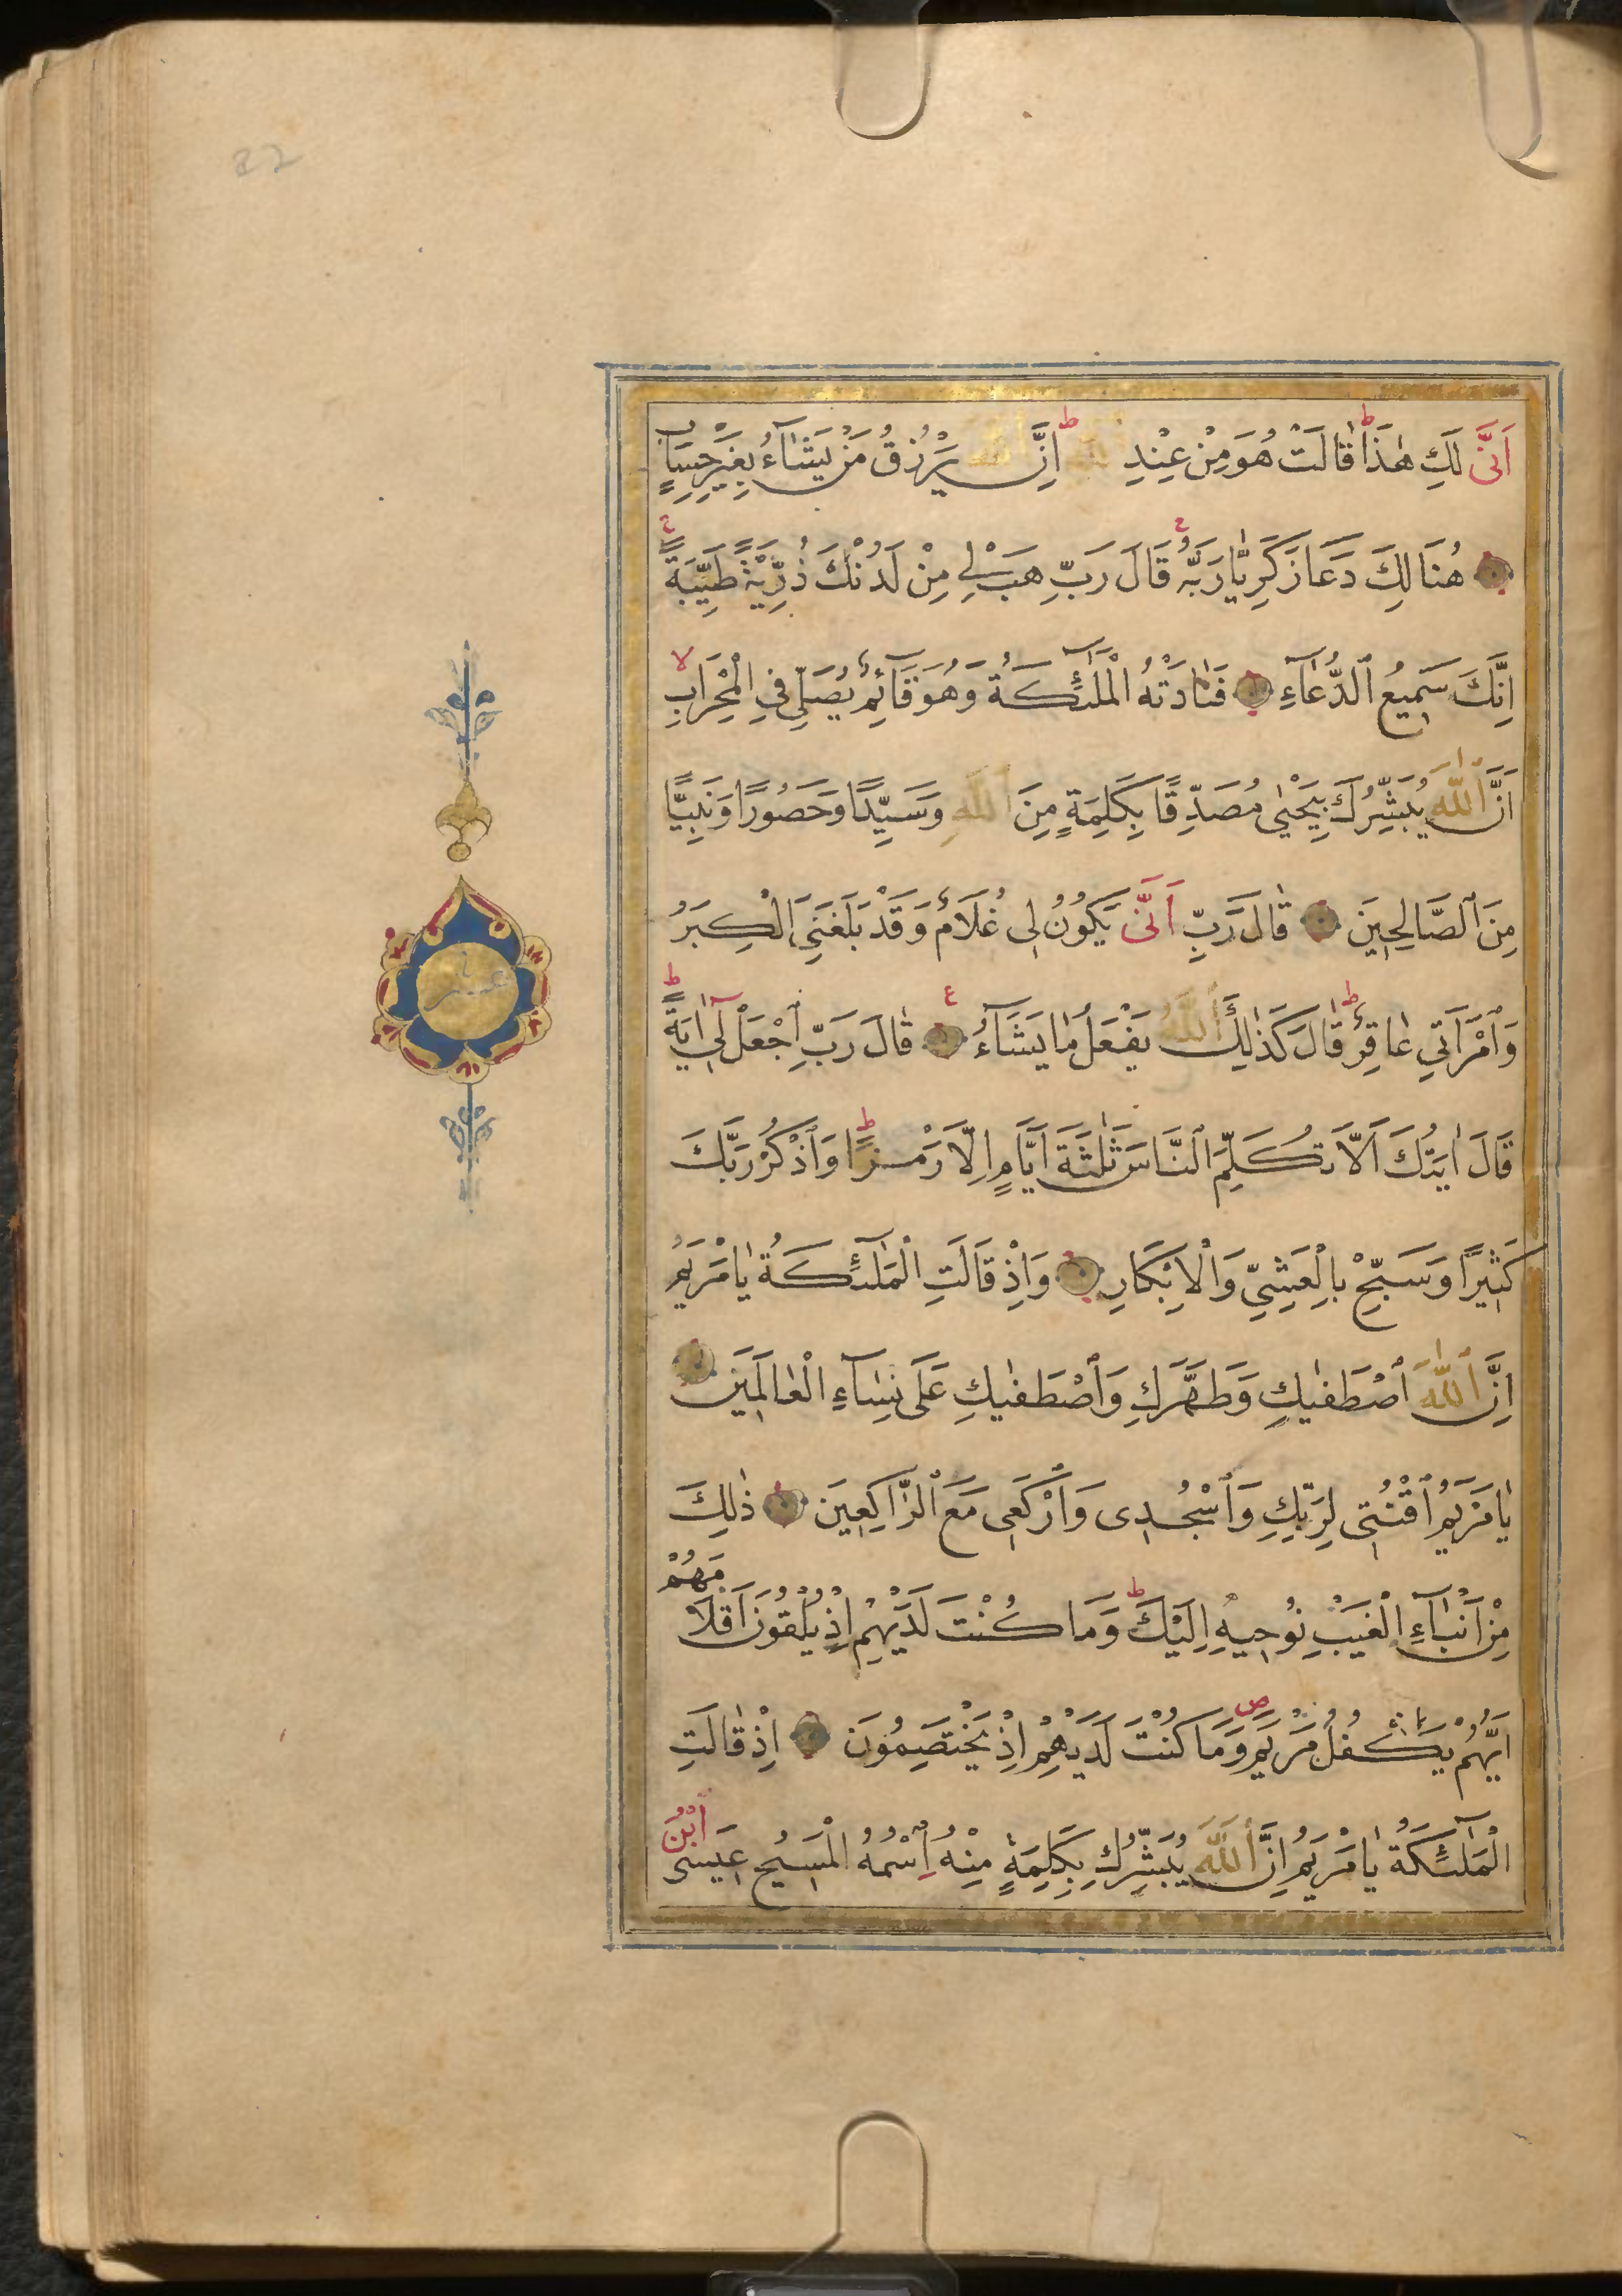 اَنّٰى لَكِ هٰذَا ط قَالَتْ هُوَ مِنْ عِنْدِ اللّٰهِ ط اِنَّ اللّٰهَ يَرْزُقُ مَنْ يَشَآءُ بِغَيْرِ حِسَابٍ
هُنَالِكَ دَعَا زَكَرِيَّا رَبَّهُ ج قَالَ رَبِّ هَبْ لِي مِنْ لَدُنْكَ ذُرِّيَّةً طَيِّبَةً ج
اِنَّكَ سَمِيعُ ٱلدُّعَآءِ فَنَادَتْهُ الْمَلٰٓئِكَةُ وَهُوَ قَآئِمٌ يُصَلِّي فِي الْمِحْرَابِ لا
اَنَّ ٱللّٰهَ يُبَشِّرُكَ بِيَحْيٰى مُصَدِّقًا بِكَلِمَةٍ مِنَ ٱللّٰهِ وَسَيِّدًا وَحَصُورًا وَنَبِيًّا
مِنَ ٱلصَّالِحِينَ قَالَ رَبِّ اَنّٰى يَكُونُ لِى غُلَامٌ وَقَدْ بَلَغَنِيَ الْكِبَرُ
وَٱمْرَاَتِي عَاقِرٌ ط قَالَ كَذٰلِكَ ٱللّٰهُ يَفْعَلُ مَا يَشَآءُ ع قَالَ رَبِّ ٱجْعَلْ لِٓي اٰيَةً ط
قَالَ اٰيَتُكَ اَلَّا تُكَلِّمَ ٱلنَّاسَ ثَلٰثَةَ اَيَّامٍ اِلَّا رَمْزًا ط وَٱذْكُرْ رَبَّكَ
كَثِيرًا وَسَبِّحْ بِالْعَشِيِّ وَالْاِبْكَارِ وَاِذْ قَالَتِ الْمَلٰٓئِكَةُ يَا مَرْيَمُ
اِنَّ ٱللّٰهَ ٱصْطَفٰيكِ وَطَهَّرَكِ وَٱصْطَفٰيكِ عَلَى نِسَآءِ الْعَالَمِينَ
يَا مَرْيَمُ ٱقْنُتِى لِرَبِّكِ وَٱسْجُدِى وَٱرْكَعِى مَعَ ٱلرَّاكِعِينَ ذٰلِكَ
مِنْ اَنْبَآءِ الْغَيْبِ نُوحِيهِ اِلَيْكَ ط وَمَا كُنْتَ لَدَيْهِمْ اِذْ يُلْقُونَ اَقْلَامَهُمْ
اَيُّهُمْ يَكْفُلُ مَرْيَمَ ص وَمَا كُنْتَ لَدَيْهِمْ اِذْ يَخْتَصِمُونَ اِذْ قَالَتِ
الْمَلٰٓئِكَةُ يَا مَرْيَمُ اِنَّ ٱللّٰهَ يُبَشِّرُكِ بِكَلِمَةٍ مِنْهُ ٱسْمُهُ الْمَسِيحُ عِيسَى ٱبْنُ
عشر